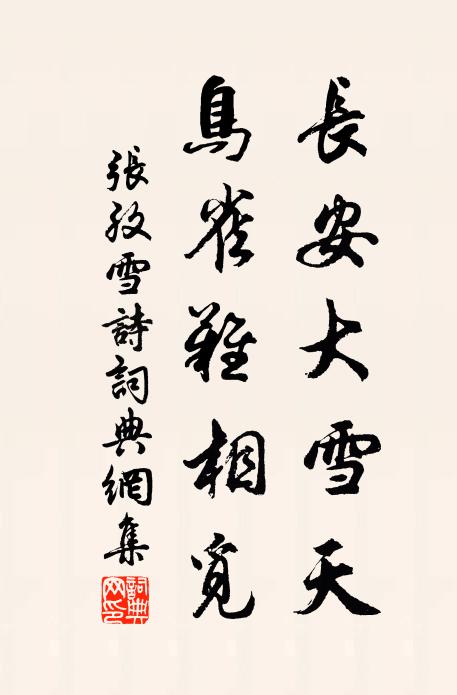 長安大雪天
鳥雀難相覓
張孜雪詩詞典網集
詞典网印